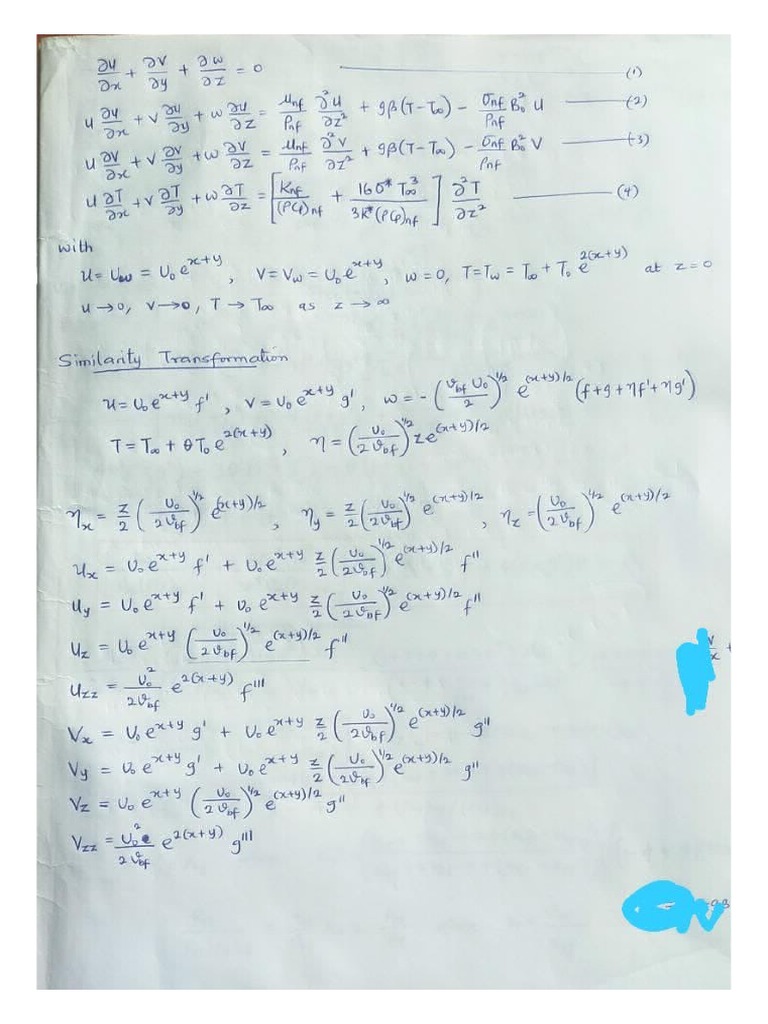 ∂u/∂x + ∂v/∂y + ∂w/∂z = 0 ——— (1)
u ∂u/∂x + v ∂u/∂y + w ∂u/∂z = μnf/ρnf ∂²u/∂z² + gβ(T-T∞) - σnf/ρnf B₀² u ——— (2)
u ∂v/∂x + v ∂v/∂y + w ∂v/∂z = μnf/ρnf ∂²v/∂z² + gβ(T-T∞) - σnf/ρnf B₀² v ——— (3)
u ∂T/∂x + v ∂T/∂y + w ∂T/∂z = [Knf/(ρCp)nf + 16σ* T∞³/3k*(ρCp)nf] ∂²T/∂z² ——— (4)
with
u = Uw = U₀ e^(x+y), v = Vw = U₀ e^(x+y), w = 0, T = Tw = T∞ + T₀ e^(2(x+y)) at z = 0
u → 0, v → 0, T → T∞ as z → ∞
Similarity Transformation
u = U₀ e^(x+y) f', v = U₀ e^(x+y) g', w = -(ϑbf U₀/2)^(1/2) e^((x+y)/2) (f+g+ηf'+ηg')
T = T∞ + θ T₀ e^(2(x+y)), η = (U₀/2ϑbf)^(1/2) z e^((x+y)/2)
ηx = z/2 (U₀/2ϑbf)^(1/2) e^((x+y)/2), ηy = z/2 (U₀/2ϑbf)^(1/2) e^((x+y)/2), ηz = (U₀/2ϑbf)^(1/2) e^((x+y)/2)
ux = U₀ e^(x+y) f' + U₀ e^(x+y) z/2 (U₀/2ϑbf)^(1/2) e^((x+y)/2) f''
uy = U₀ e^(x+y) f' + U₀ e^(x+y) z/2 (U₀/2ϑbf)^(1/2) e^((x+y)/2) f''
uz = U₀ e^(x+y) (U₀/2ϑbf)^(1/2) e^((x+y)/2) f''
uzz = U₀²/2ϑbf e^(2(x+y)) f'''
Vx = U₀ e^(x+y) g' + U₀ e^(x+y) z/2 (U₀/2ϑbf)^(1/2) e^((x+y)/2) g''
Vy = U₀ e^(x+y) g' + U₀ e^(x+y) z/2 (U₀/2ϑbf)^(1/2) e^((x+y)/2) g''
Vz = U₀ e^(x+y) (U₀/2ϑbf)^(1/2) e^((x+y)/2) g''
Vzz = U₀²/2ϑbf e^(2(x+y)) g'''